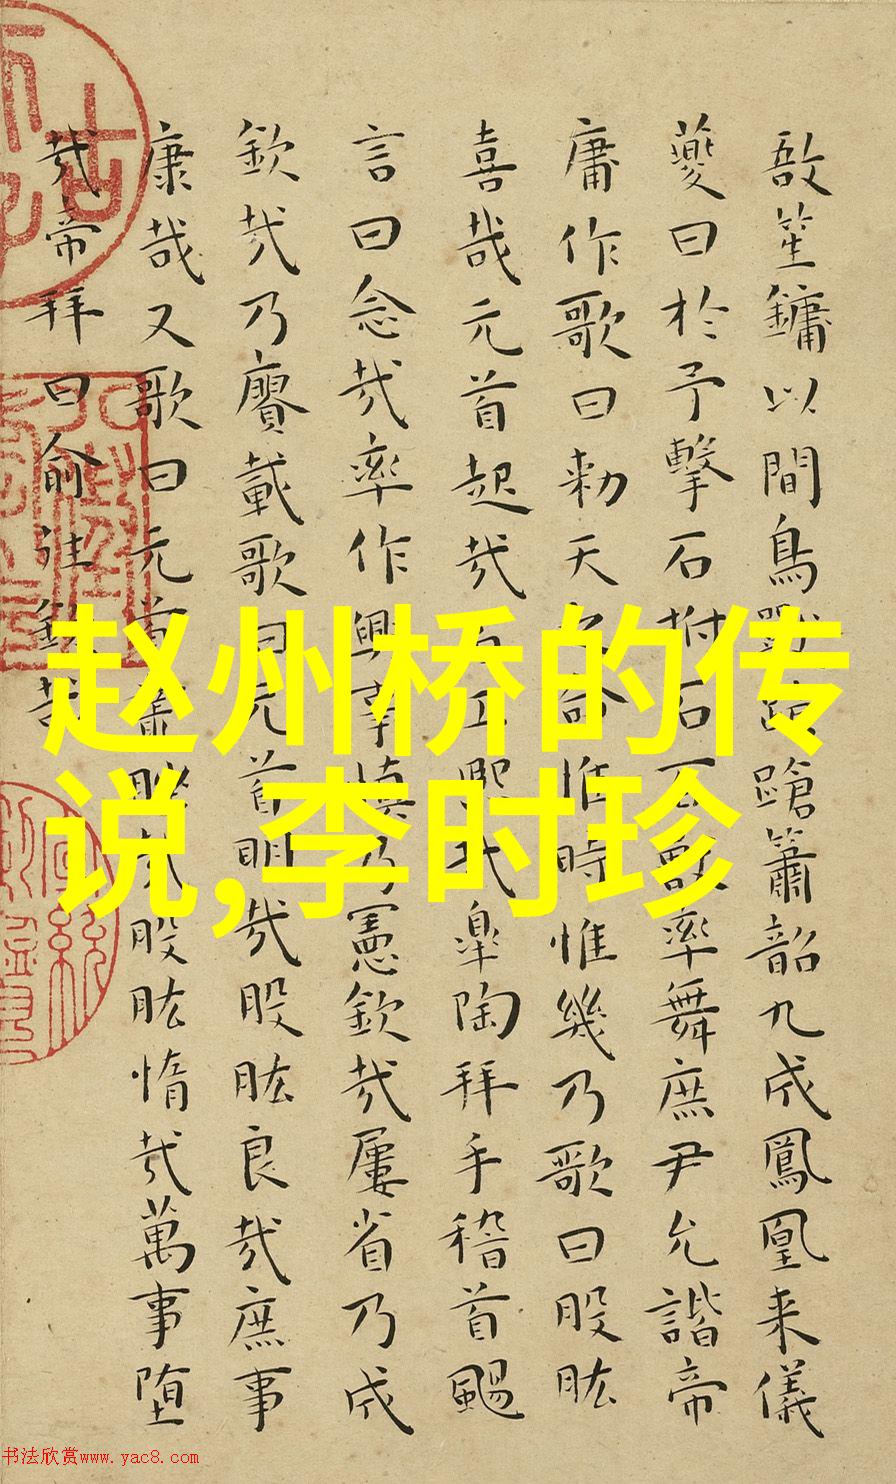 敔笙鏞以間鳥獸蹌蹌簫韶九成鳳凰来儀
夔曰於予擊石拊石百獸率舞庶尹允諧帝
庸作歌曰勑天之命惟時惟幾乃歌曰股肱
喜哉元首起哉百工熙哉皋陶拜手稽首颺
言曰念哉率作興事慎乃憲欽哉屢省乃成
欽哉乃賡載歌曰元首明哉股肱良哉庶事
康哉又歌曰元首叢脞哉股肱惰哉萬事堕
哉帝拜曰俞往欽哉
赵州桥的传
说,李时珍
书法欣赏www.yac8.com